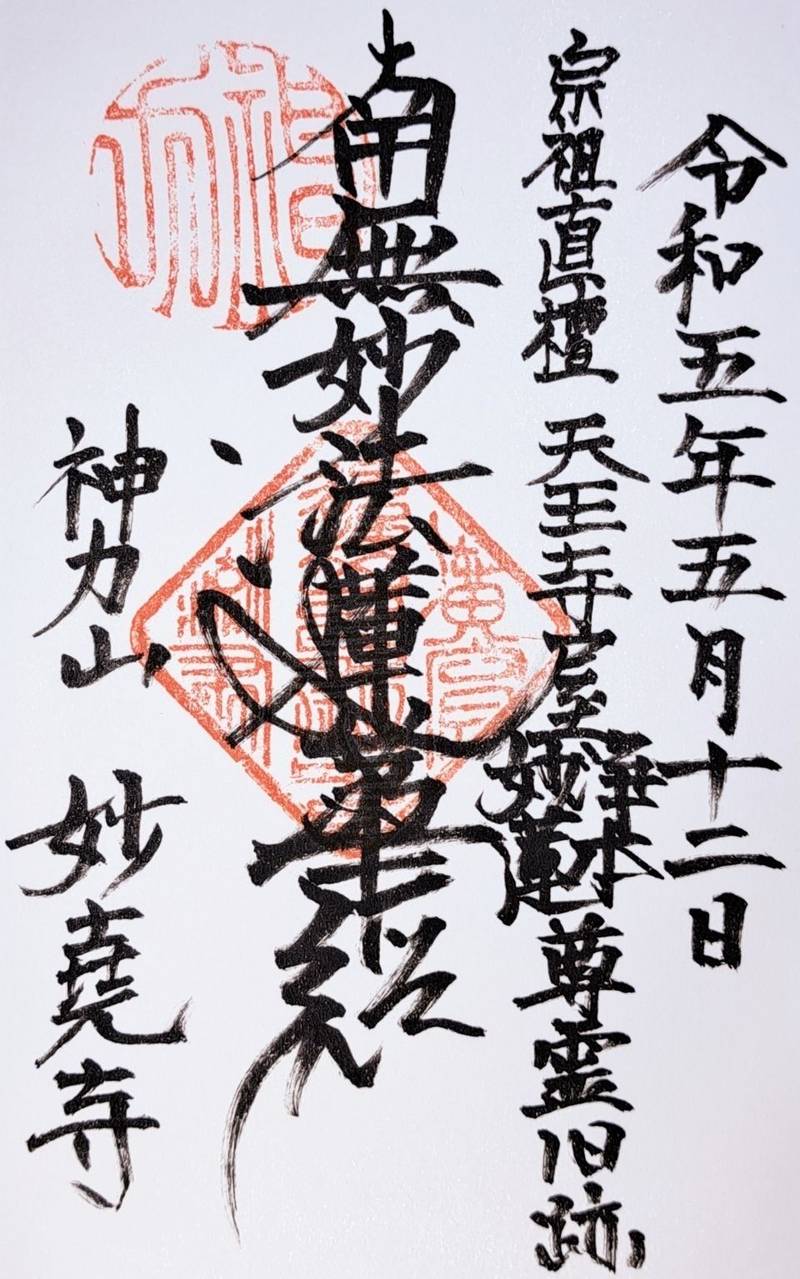 令和五年五月十二日
宗祖直檀 天王寺屋 浄本 妙蓮 尊霊旧跡
南無妙法蓮華経
神力山 妙堯寺